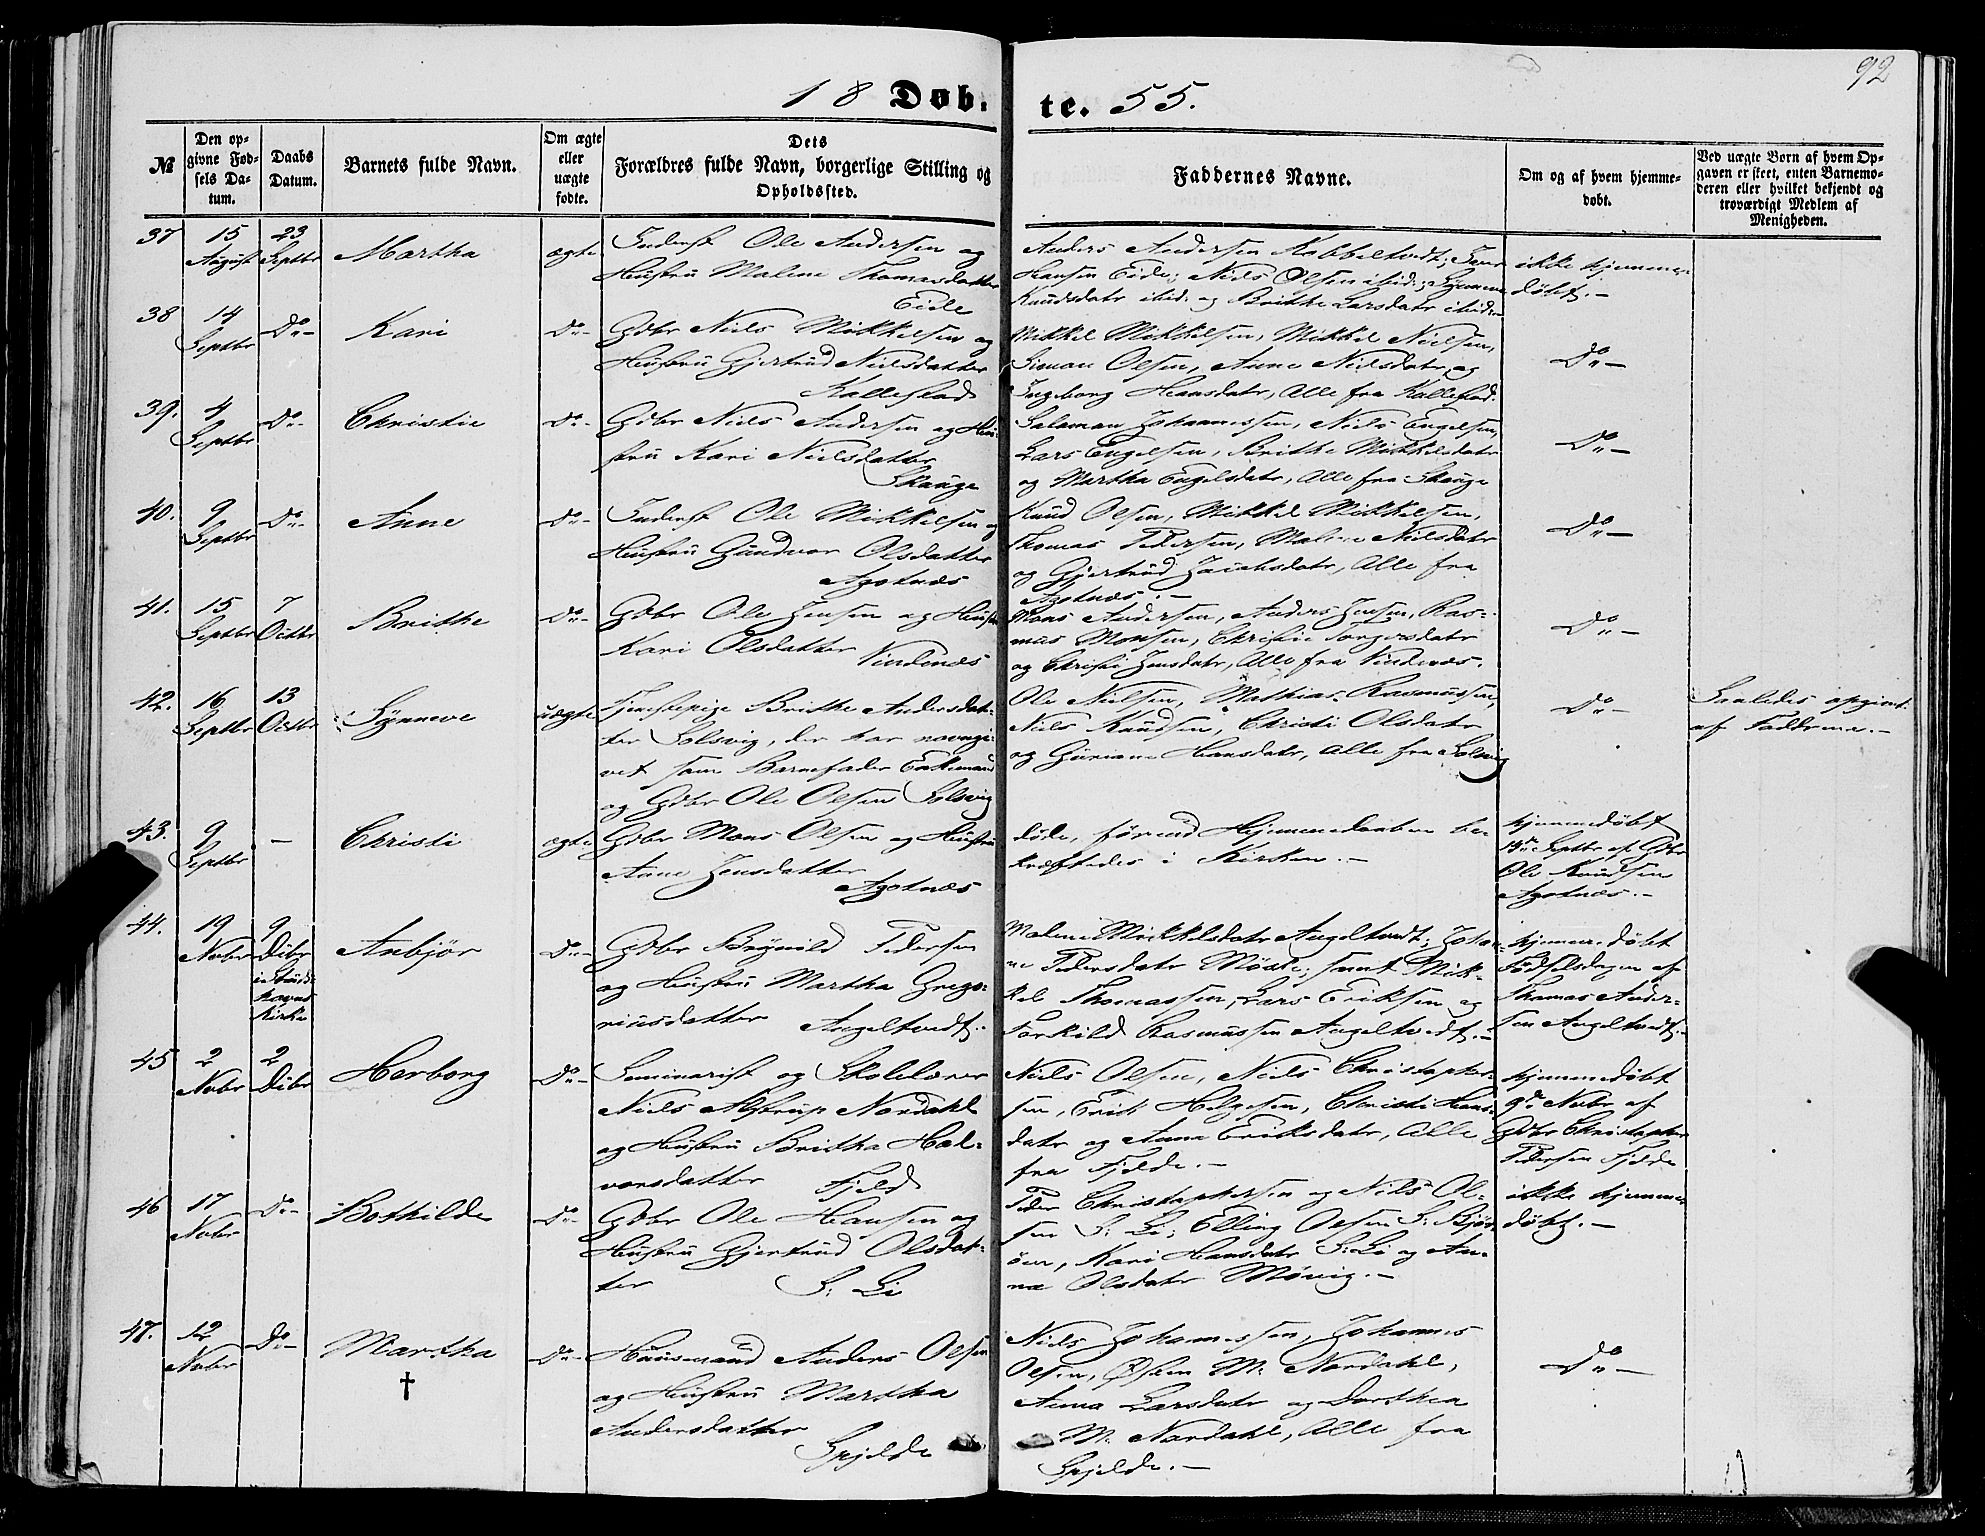 92
18 Døb- te. 55.
№
Den opgivne Fødsels Datum.
Daabs Datum.
Barnets fulde Navn.
Om ægte eller uægte fødte.
Dets Forældres fulde Navn, borgerlige Stilling og Opholdssted.
Faddernes Navne.
Om og af hvem hjemmedøbt.
Ved uægte Børn af hvem Opgaven er skeet, enten Barnemoderen eller hvilket bekjendt og troværdigt Medlem af Menigheden.
37 15 August 23 Septbr Martha ægte
Inderst Ole Andersen og
Hustru Malene Thomasdatter
Eide
Anders Andersen Kobbeltvedt;
Hansen Eide; Niels Olsen ibid;
Knudsdatr ibid. og Brithe Larsdatr ibid.-
ikke hjemme-
døbt.-
38 14 Septbr Do- Kari Do-
Gdbr Niels Mikkelsen og
Hustru Gjertrud Nielsdatter
Kallestad
Mikkel Mikkelsen, Mikkel Nielsen,
Simon Olsen, Anne Nielsdatr og
Ingeborg Hansdatr, Alle fra Kallestad.
Do-
39. 4 Septbr Do- Christie Do-
Gdbr Niels Andersen og Hu-
stru Kari Nielsdatter
Skauge
Salamon Johannessen, Niels Engelsen,
Lars Engelsen, Brithe Mikkelsdatr
og Martha Engelsdatr, Alle fra Skauge
Do-
40. 9 Septbr Do- Anne Do-
Inderst Ole Mikkelsen og
Hustru Gundvor Olsdatter
Agotnæs
Knud Olsen, Mikkel Mikkelsen,
Thomas Pedersen, Malene Nielsdatr
og Gjertrud Jacobsdatr, Alle fra
Agotnæs.-
Do-
41. 15 Septbr 7 Octbr Brithe Do-
Gdbr Ole Jensen og Hustru
Kari Olsdatter Vindenæs
Mons Andersen, Anders Jensen, Ras-
mus Monsen, Christie Torgersdatr
og Christi Jensdatr, Alle fra Vindenæs.
Do-
42. 16 Septbr 13 Octbr Synneve uægte
Tjenestepige Brithe Andersdat-
ter Solsvig, der har navngi-
vet som Barnefader Enkemand
og Gdbr Ole Olsen Solsvig
Ole Nielsen, Mathias Rasmussen,
Niels Knudsen, Christi Olsdatr
og Guriane Hansdatr, Alle fra Solsvig
Do-
Saaledes opgivet
af Fadderne.-
43. 9 Septbr - Christi ægte
Gdbr Mons Olsen og Hustru
Anne Jensdatter
Agotnæs
døde, førend Hjemmedaaben be-
kræftedes i Kirken.-
hjemmedøbt
Septbr af Gdbr
Ole Knudsen
Agotnæs.-
44. 19 Novbr 9 Dcbr Anbjør Do-
Gdbr Brynild Pedersen
og Hustru Martha Grego-
riusdatter Angeltvedt.-
Malene Mikkelsdatr Angeltvedt; Johan-
ne Pedersdatr Møste; samt Mik-
kel Thomassen, Lars Eriksen og
Torkild Rasmussen Angeltvedt.-
hjemmedøbt
Fødselsdagen af
Thomas Ander-
sen Angeltvedt.-
45 2 Novbr 2 Dcbr Herborg Do-
Seminarist og Skolelærer
Niels Alstrup Nordahl
og Hustru Britha Hal-
vorsdatter Fjeld
Niels Olsen, Niels Christopher-
sen, Erik Helgesen, Christi Hans-
datr og Anna Eriksdatr, Alle
fra Fjelde.-
hjemmedøbt
9de Novbr af
Gdbr Christopher
Pedersen Fjelde
46 17 Novbr Do- Bothilde Do-
Gdbr Ole Hansen og
Hustru Gjertrud Olsdat-
ter S: Li
Peder Christophersen og Niels Ol-
sen S: Li; Elling Olsen S. Bjør-
øen, Kari Hansdatr S: Li og An-
na Olsdatr Møvig.-
ikke hjemme-
døbt.-
47. 12 Novbr Do- Martha † Do-
Huusmand Anders Olsen
og Hustru Martha
Andersdatter
Spjelde
Niels Johannessen, Johannes
Olsen, M. Nordahl,
Anna Larsdatr og Dorthea
M. Nordahl, Alle fra
Spjelde.-
Do-